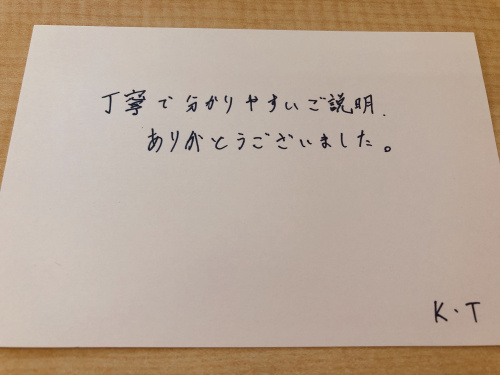 丁寧で分かりやすいご説明、
ありがとうございました。
K・T